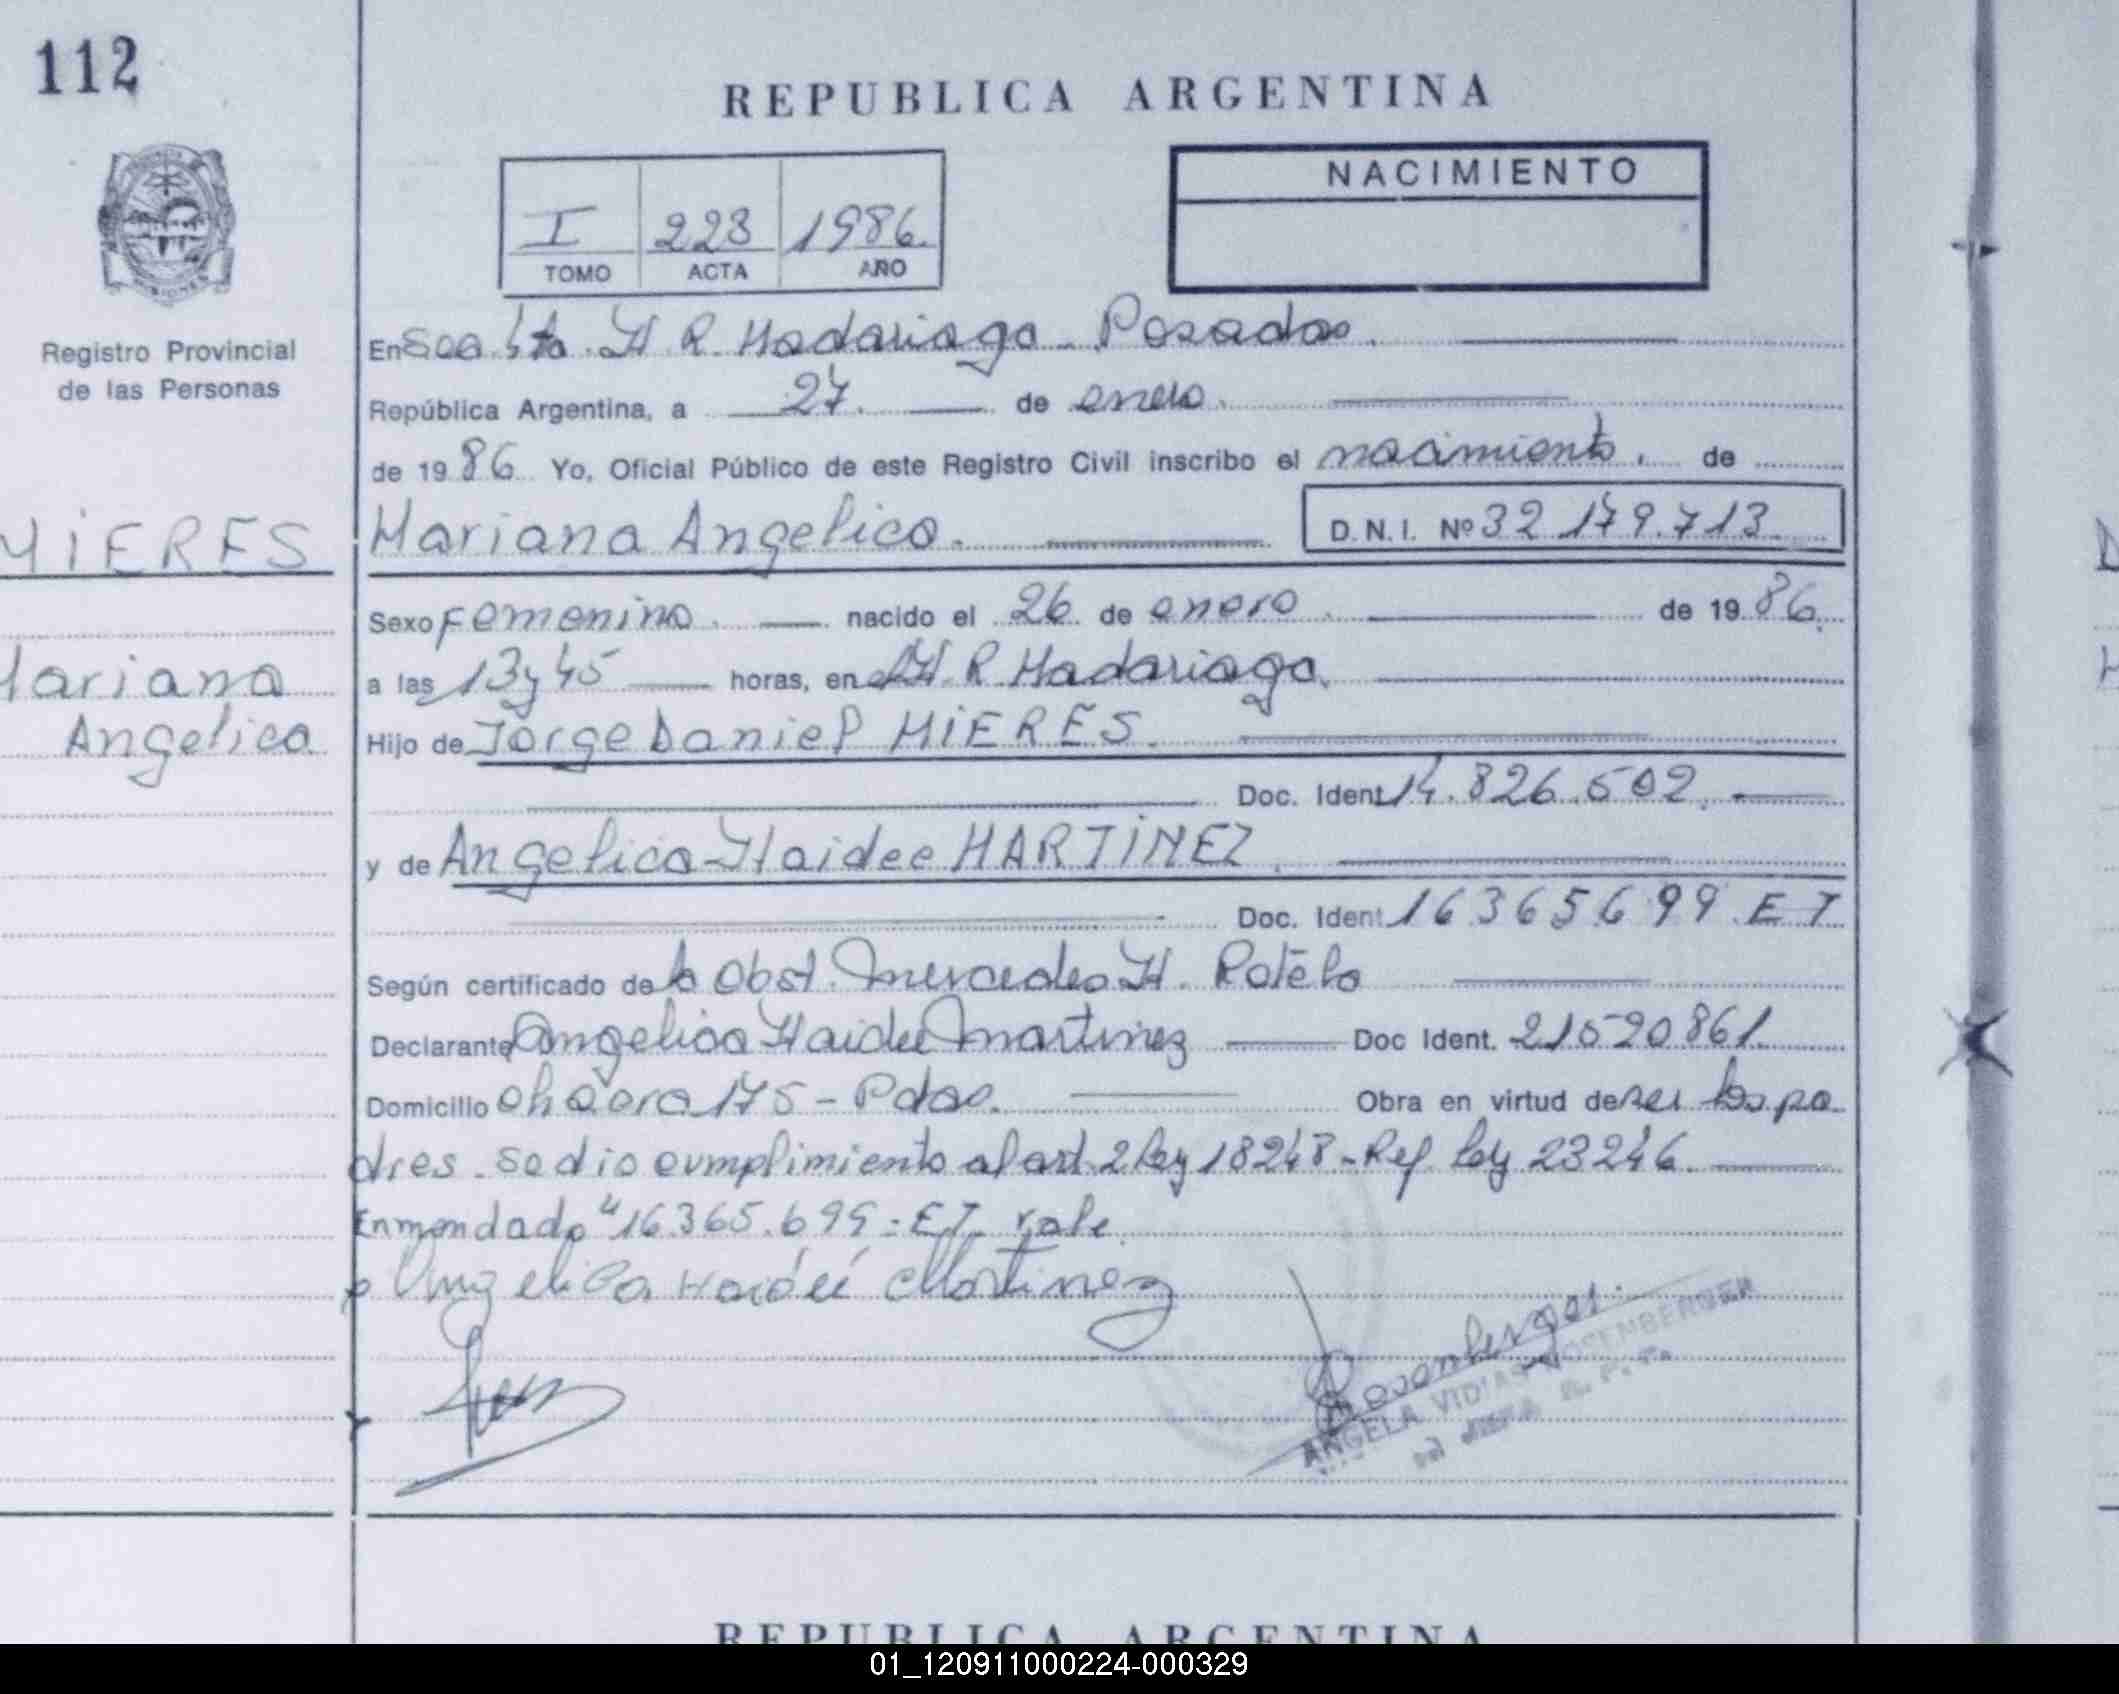 112
REPUBLICA ARGENTINA
NACIMIENTO
I 223 1986.
TOMO ACTA AÑO
Registro Provincial
de las Personas
En Scc. H R. Madariaga - Posadas.
República Argentina, a 27. de enero.
de 1986. Yo, Oficial Público de este Registro Civil inscribo el nacimiento. de
MIERES
Mariana Angelica. D.N.I. Nº 32.179.713
Sexo Femenino. nacido el 26 de enero. de 1986.
Mariana
Angelica
a las 13 y 45 horas, en el H. R Madariaga.
Hijo de Jorge Daniel MIERES.
Doc. Ident 14.826.502.
y de Angelica Haidee MARTINEZ.
Doc. Ident. 16365699 E T
Según certificado de la Obst. Mercedes H. Rotela
Declarante Angelica Haidee Martinez Doc Ident. 21520861.
Domicilio chacra 175 - Pdas. Obra en virtud de ser los pa
dres. Se dio cumplimiento al art. 2 ley 18248 - Ref ley 23246.
Enmendado "16.365.699 = ET vale.
Angelica Haideé Martinez
Rosenberger.
ANGELA ROSENBERGER
REPUBLICA ARGENTINA
01_120911000224-000329